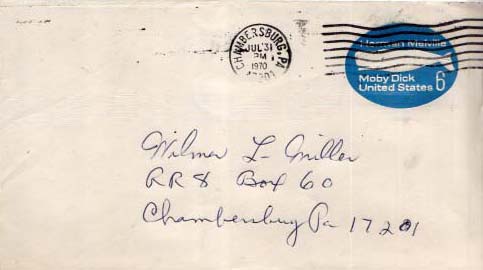 CHAMBERSBURG, PA
JUL 31
PM
1970
Herman Melville
Moby Dick
United States 6
Wilmer L Miller
RR 8 Box 60
Chambersburg Pa 17201